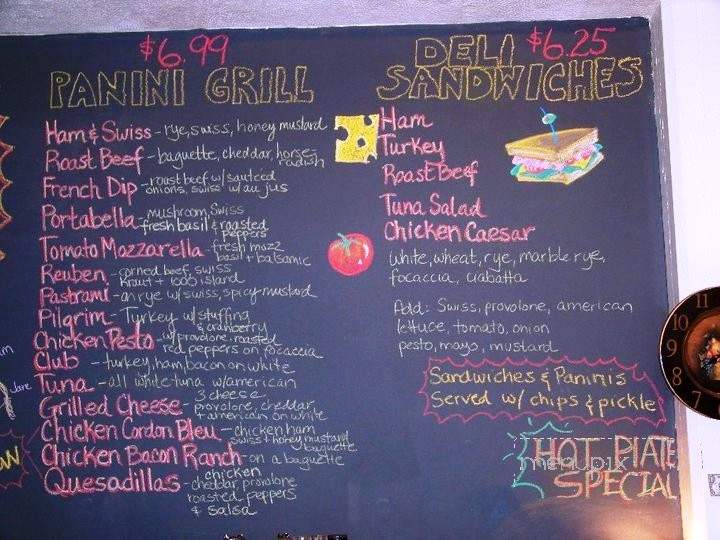 $6.99
PANINI GRILL
Ham & Swiss - rye, swiss, honey mustard
Roast Beef - baguette, cheddar, horse-
radish
French Dip - roast beef w/ sauteed
onions, swiss w/ au jus
Portabella - mushroom, Swiss
fresh basil & roasted
peppers
Tomato Mozzarella - fresh mozz
basil + balsamic
Reuben - corned beef, swiss
kraut + 1000 island
Pastrami - on rye w/ swiss, spicy mustard
Pilgrim - Turkey w/ stuffing
& cranberry
Chicken Pesto - w/ provolone, roasted
red peppers on focaccia
Club - turkey, ham, bacon on white
Tuna - all white tuna w/ american
Grilled Cheese - 3 cheese
provolone, cheddar,
+ american on white
Chicken Cordon Bleu - chicken ham
swiss + honey mustard
baguette
Chicken Bacon Ranch - on a baguette
Quesadillas - chicken
cheddar provolone
roasted peppers
& salsa
DELI $6.25
SANDWICHES
Ham
Turkey
Roast Beef
Tuna Salad
Chicken Caesar
white, wheat, rye, marble rye,
focaccia, ciabatta
Add: Swiss, provolone, american
lettuce, tomato, onion
pesto, mayo, mustard
Sandwiches & Paninis
Served w/ chips & pickle
HOT PLATE
SPECIAL
menupix
11
10
9
8
7